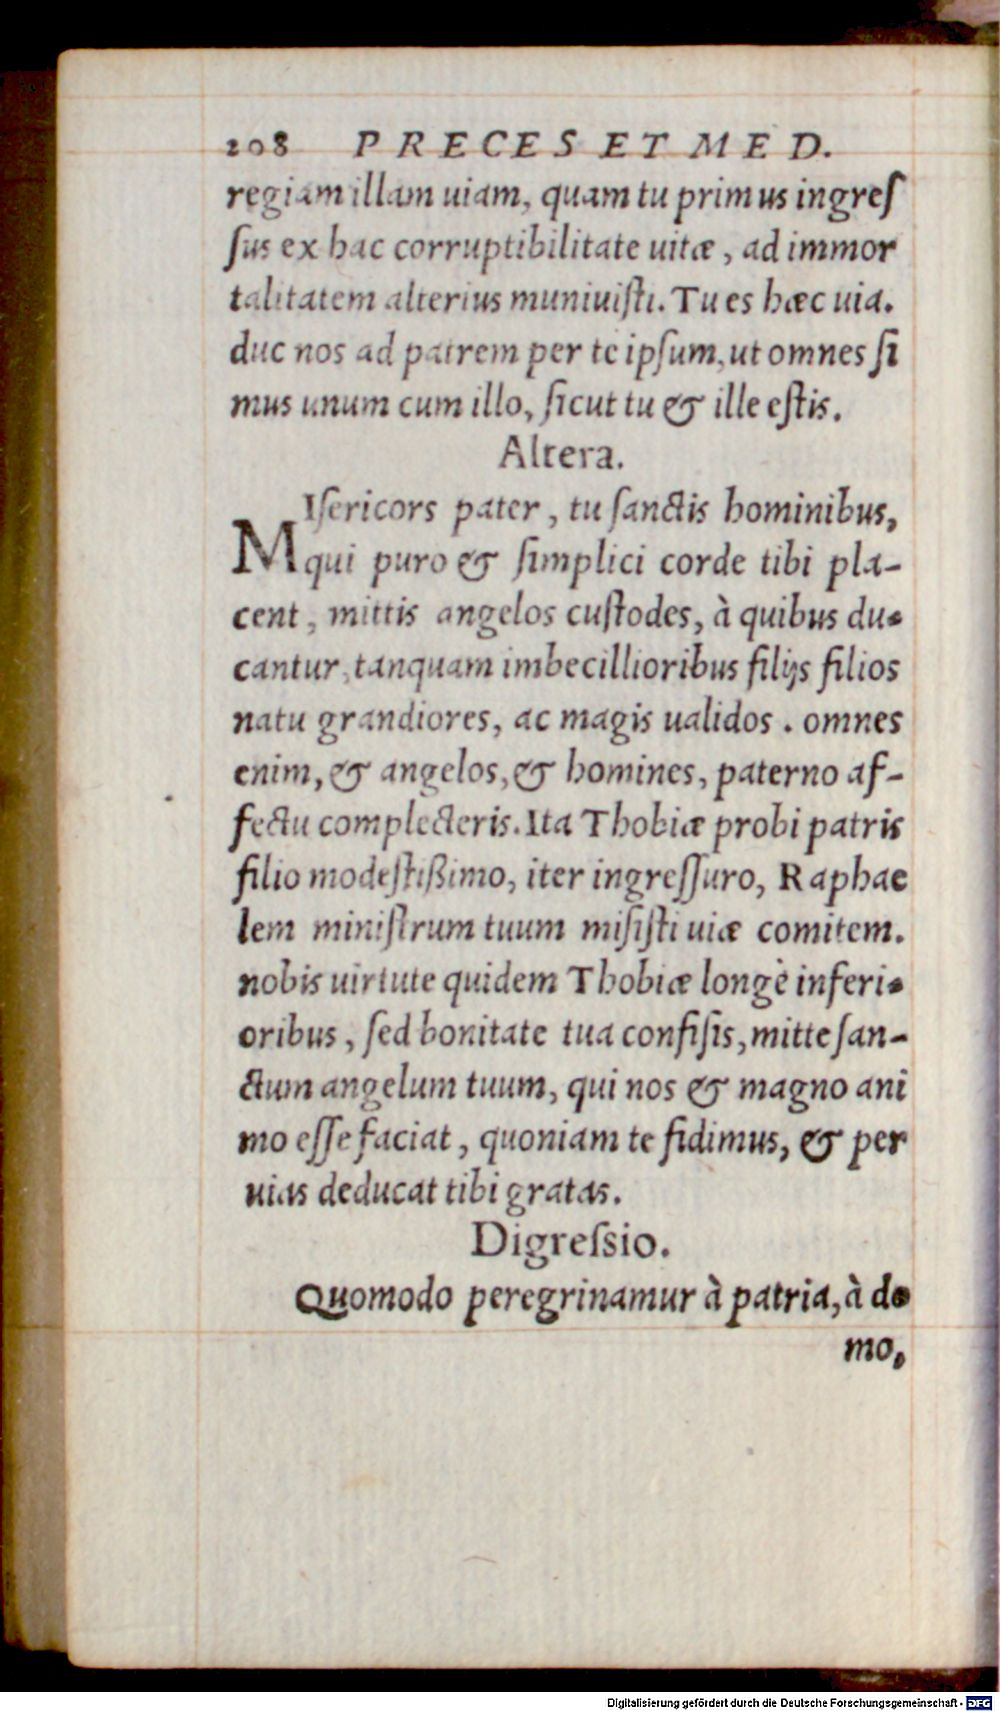 208 PRECES ET MED.
regiam illam uiam, quam tu primus ingreſ
ſus ex hac corruptibilitate uitæ, ad immor
talitatem alterius muniuiſti. Tu es hæc uia.
duc nos ad patrem per te ipſum, ut omnes ſi
mus unum cum illo, ſicut tu & ille eſtis.
Altera.
MIſericors pater, tu ſanctis hominibus,
qui puro & ſimplici corde tibi pla-
cent, mittis angelos cuſtodes, à quibus du-
cantur, tanquam imbecillioribus filijs filios
natu grandiores, ac magis ualidos. omnes
enim, & angelos, & homines, paterno af-
fectu complecteris. Ita Thobiæ probi patris
filio modeſtißimo, iter ingreſſuro, Raphae
lem miniſtrum tuum miſiſti uiæ comitem.
nobis uirtute quidem Thobiæ longè inferi-
oribus, ſed bonitate tua confiſis, mitte ſan-
ctum angelum tuum, qui nos & magno ani
mo eſſe faciat, quoniam te fidimus, & per
uias deducat tibi gratas.
Digreſsio.
Quomodo peregrinamur à patria, à do
mo,
Digitalisierung gefördert durch die Deutsche Forschungsgemeinschaft - DFG